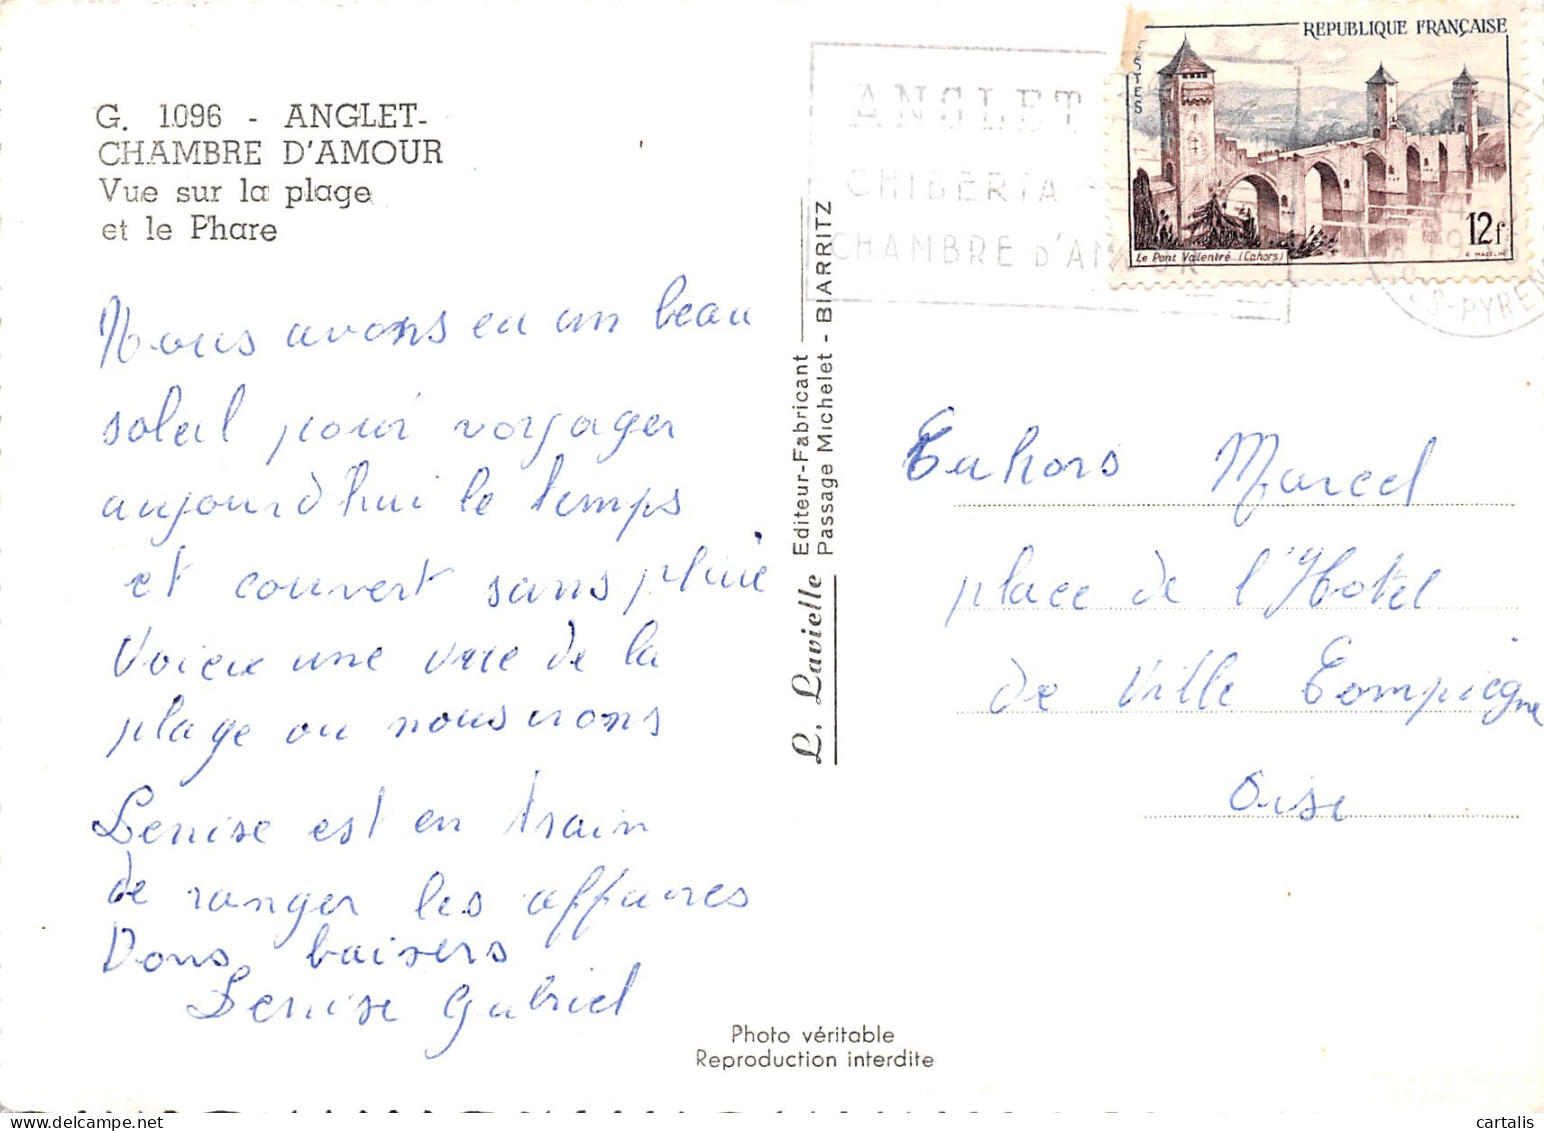 G. 1.096 - ANGLET-
CHAMBRE D'AMOUR
Vue sur la plage
et le Phare
Nous avons eu un beau
soleil pour voyager
aujourd'hui le temps
et couvert sans pluie
Voici une vue de la
plage ou nous irons
Denise est en train
de ranger les affaires
Dons baisers
Denise Gabriel
L. Lavielle
Editeur-Fabricant
Passage Michelet - BIARRITZ
Photo véritable
Reproduction interdite
ANGLET
CHIBERTA -
CHAMBRE D'AMOUR
REPUBLIQUE FRANÇAISE
12f
Le Pont Valentré (Cahors)
S-PYREN
Cahors Marcel
place de l'Hotel
de Ville Compiègne
Oise
cartalis